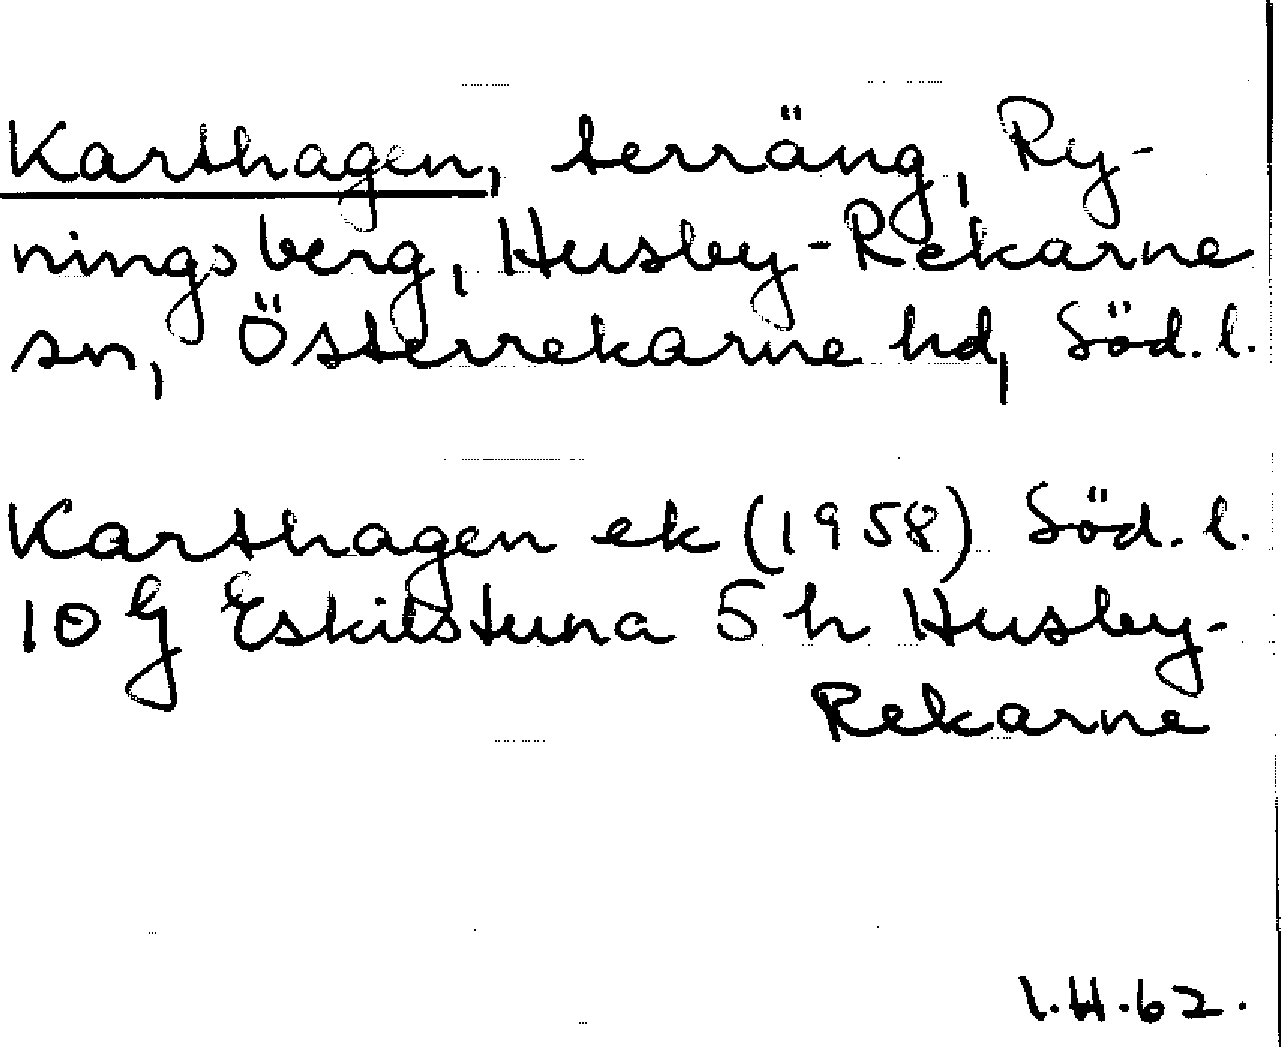 Karthagen, terräng, Ry-
ningsberg, Husby-Rekarne
sn, Österrekarne hd, Söd. l.
Karthagen ek (1958) Söd. l.
10 G Eskilstuna 5 h Husby-
Rekarne
I.H.62.